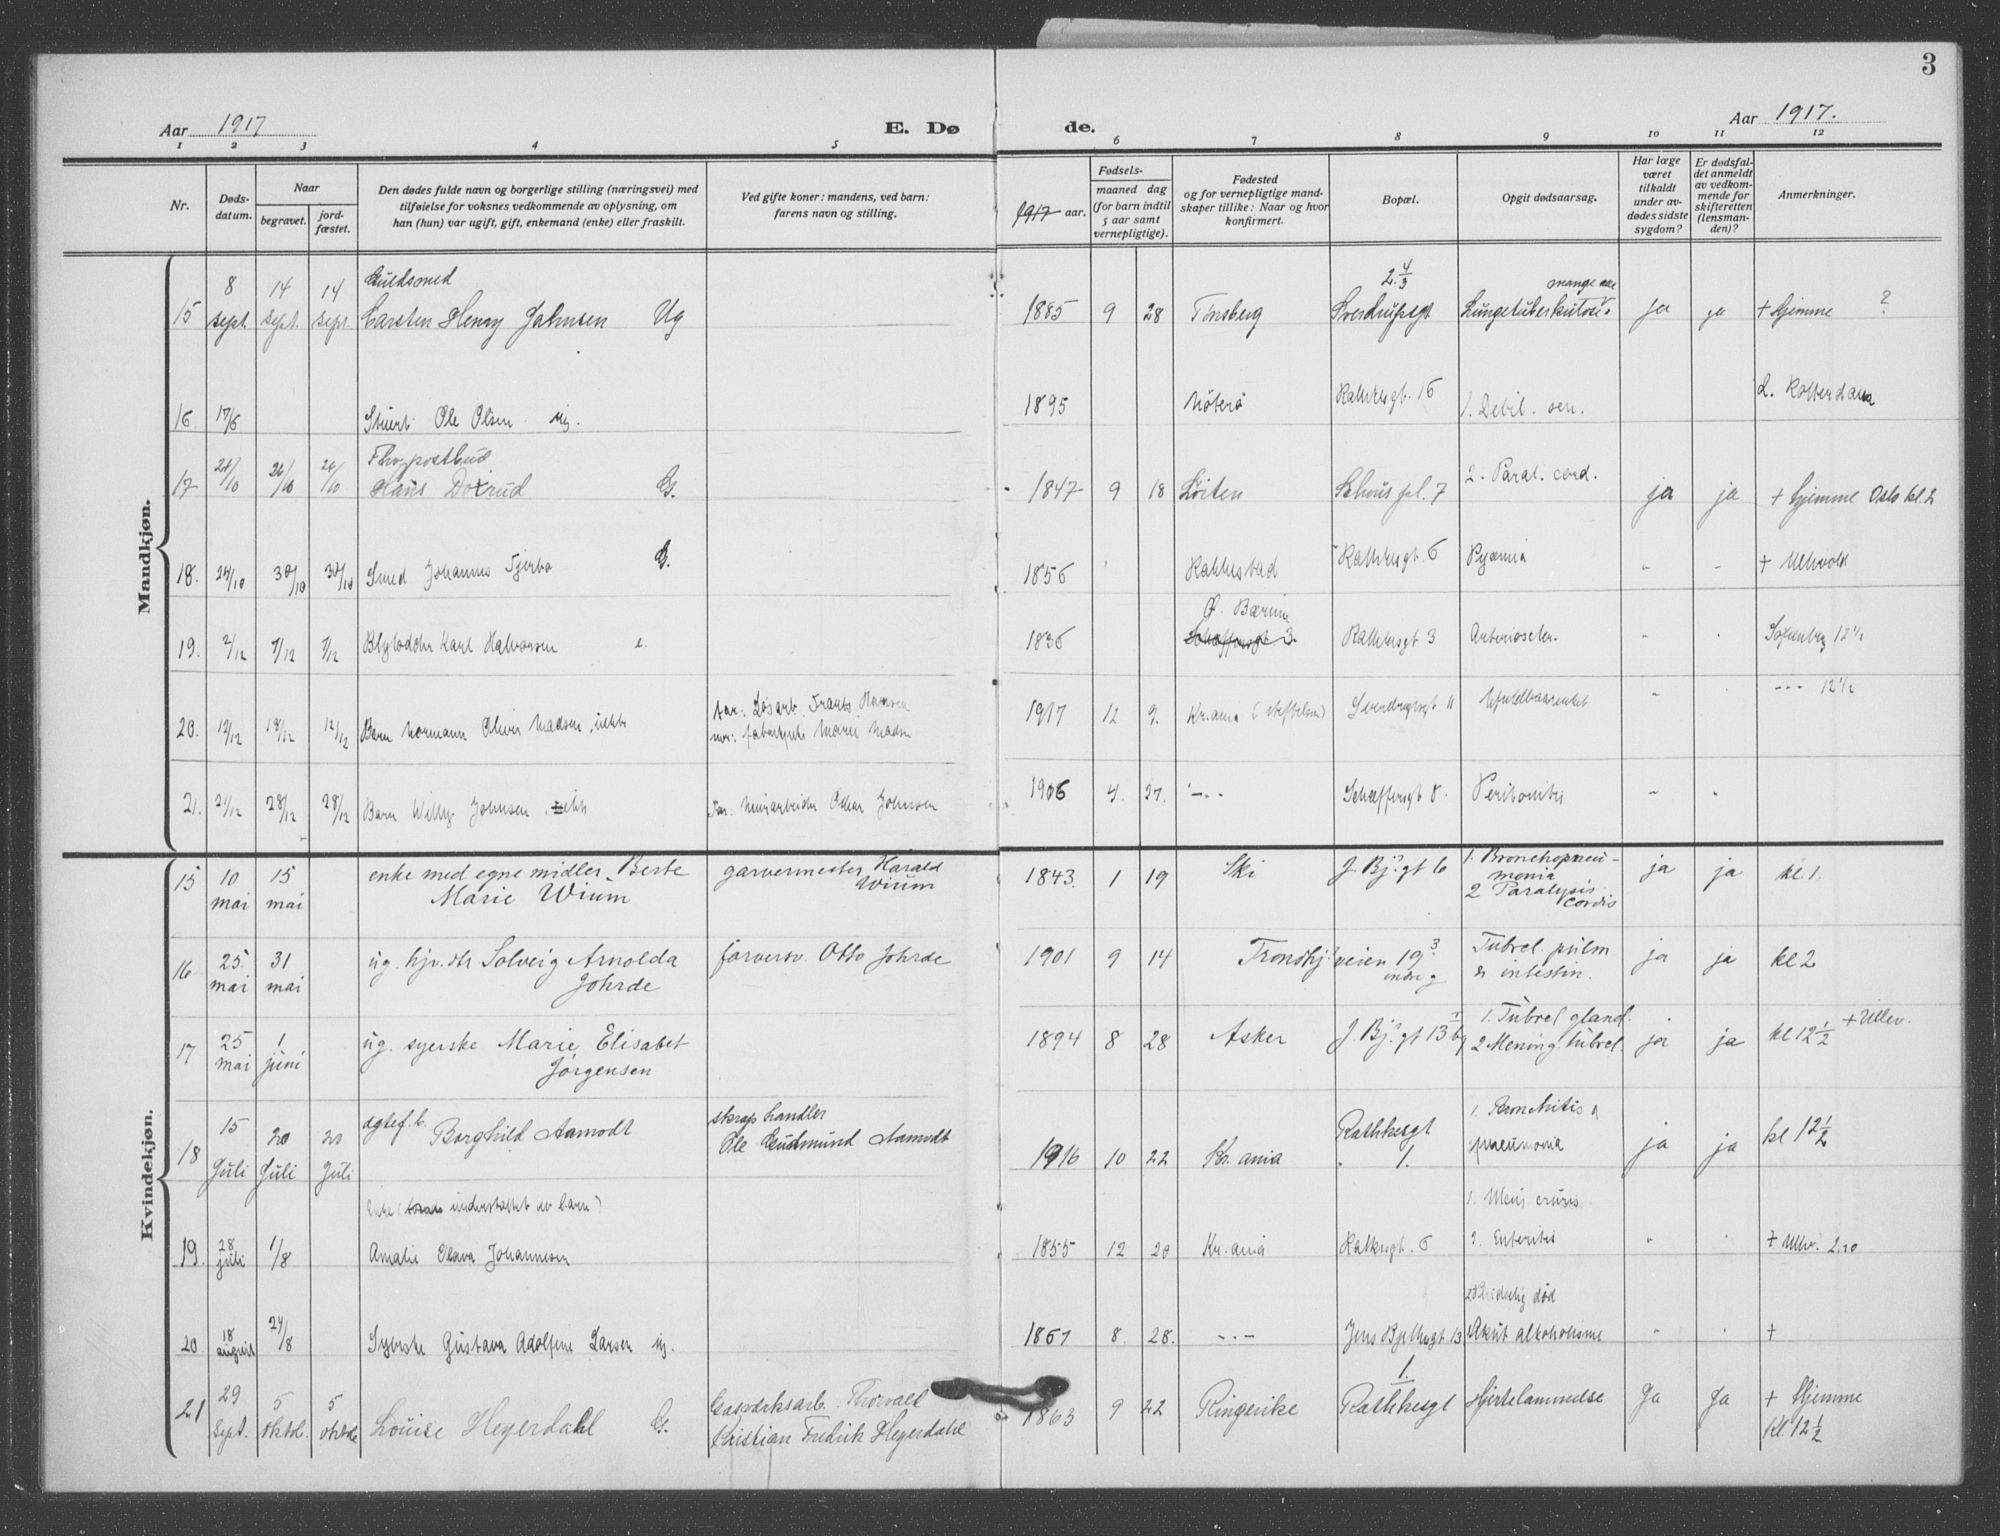 3
Aar 1917
E. Dø
de.
Aar 1917.
1 2 3 4 5 6 7 8 9 10 11 12
Nr.
Døds-
datum.
Naar
begravet.
jord-
fæstet.
Den dødes fulde navn og borgerlige stilling (næringsvei) med
tilføielse for voksnes vedkommende av oplysning, om
han (hun) var ugift, gift, enkemand (enke) eller fraskilt.
Ved gifte koner: mandens, ved barn:
farens navn og stilling.
1917 aar.
Fødsels-
maaned dag
(for barn indtil
5 aar samt
vernepligtige).
Fødested
og for vernepligtige mand-
skaper tillike: Naar og hvor
konfirmert.
Bopæl.
Opgit dødsaarsag.
Har læge
været
tilkaldt
under av-
dødes sidste
sygdom?
Er dødsfal-
det anmeldt
av vedkom-
mende for
skifteretten
(lensman-
den)?
Anmerkninger.
Mandkjøn.
15 8 sept. 14 sept. 14 sept. Guldsmed
Carsten Henry Jahnsen Ug 1885 9 28 Tønsberg Sverdrupsgt 2 4/3 Lungetuberkulose mange aar ja ja + Hjemme ?
16 17/6 Stuert Ole Olsen ug. 1895 Nøterø Rathkesgt. 16 1. Debil. sen. d. Rotterdam
17 21/10 26/10 26/10 Fhv. postbud
Hans Døtrud G. 1847 9 18 Løiten Schous pl. 7 2. Paral. cord. ja ja + Hjemme Oslo kl. 2
18. 24/10 30/10 30/10 Smed Johannes G. 1856 Rakkestad Rathkesgt. 6 Pyæmia " " + Ullevold
19. 2/12 7/12 7/12 Karl Halvorsen e. 1836 Ø. Bærum
Schæffersgt 3. Rathkesgt 3 Arterioscler. " " Sofienberg 12 1/2
20. 12/12 18/12 12/12 Barn Normann Oliver Madsen, uekte Far: Løsarb. Frants Hansen
mor: fabrikpike Marie Madsen 1917 12 9. Kr.ania (stiftelsen) Sverdrupsgt 11 Ufuldbaarenhet " " --- 12 1/2
21. 21/12 28/12 28/12 Barn Willy Johnsen, ekte Far. Murarbeider Oskar Johnsen 1906 4. 27. -"- Schæffersgt 8. Peritonitis " "
Kvindekjøn.
15 10 mai 15 mai enke med egne midler Berte
Marie Wium garvermester Harald
Wium 1843. 1 19 Ski J. Bj. gt 6 1. Bronchopneu-
monia
2 Paralysis
cordis ja ja kl. 1.
16 25. mai 31 mai ug. hjv. dtr Solveig Arnolda
Johrde farversv. Otto Johrde 1901 9 14 Trondhj veien 19 3
indre g Tubrcl. pulm
& intestin. ja ja kl 2
17 25 mai 1 juni ug. syerske Marie Elisabet
Jørgensen 1894 8 28 Asker J. Bj. gt 13 1/bg 1. Tubrcl gland.
2 Mening. tubrcl. ja ja kl 12 1/2 + Ullev.
18 15 Juli 20 Juli 20 Juli dgtef. b. Borghild Aamodt skraphandler
Ole Gudmund Aamodt 1916 10 22 Kr. ania Rathkesgt
1. 1. Bronchitis
pneumonia ja ja kl 12 1/2
19. 28 juli 1/8 Enke (understøttet av barn)
Amalie Olava Johannesen 1855 12 20 Kr. ania Rathkesgt. 6 1. Ulcus cruris
2. Enteritis " " + Ullev. 2.10
20. 18 august 24/8 Syerske Gustava Adolfine Larsen ug. 1867 8. 28. -"- Jens Bjelkesgt 13 Pludselig død
Akut alkoholisme " " +
21 29 Sept. 5 oktob. 5 oktob. Louise Heyerdahl G. Gasværksarb. Thorvald
Kristian Fredrik Heyerdahl 1863 9 22 Ringerike Rathkesgt 1. Hjertelammelse Ja Ja + Hjemme
Kl. 12 1/2